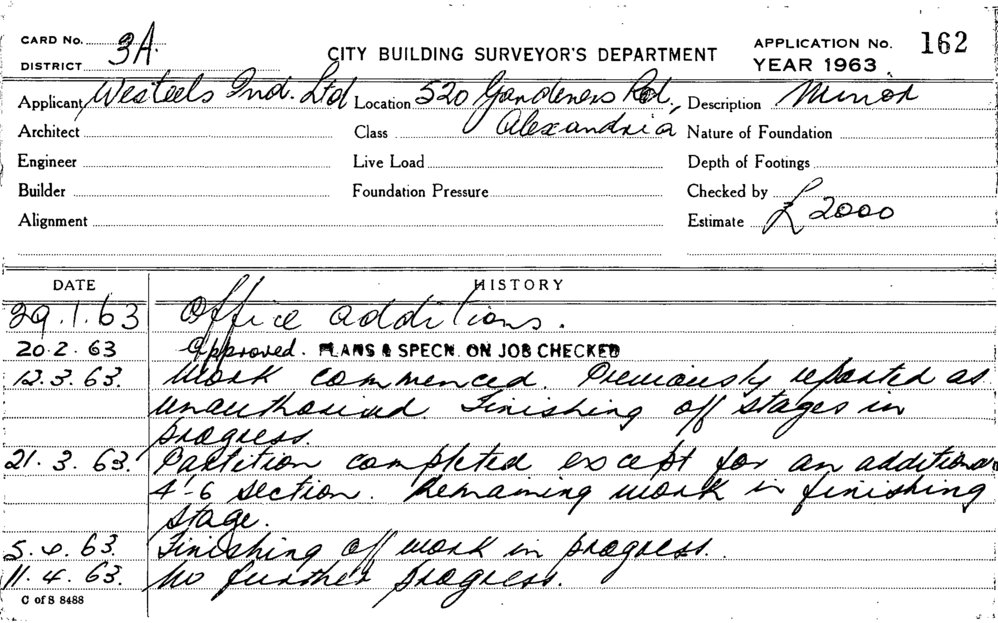 CARD No. 3A.
DISTRICT
CITY BUILDING SURVEYOR'S DEPARTMENT
APPLICATION No. 162
YEAR 1963
Applicant Westeels Ind. Ltd Location 520 Gardeners Rd., Description Minor
Architect Class Alexandria Nature of Foundation
Engineer Live Load Depth of Footings
Builder Foundation Pressure Checked by
Alignment Estimate £2000
DATE HISTORY
29.1.63 Office additions.
20.2.63 Approved. PLANS & SPECN. ON JOB CHECKED
12.3.63. Work commenced. Previously reported as
unauthorised Finishing off stages in
progress.
21.3.63. Partition completed except for an additional
4'-6 section. Remaining work in finishing
stage.
5.4.63. Finishing off work in progress.
11.4.63. No further progress.
C of S 8488